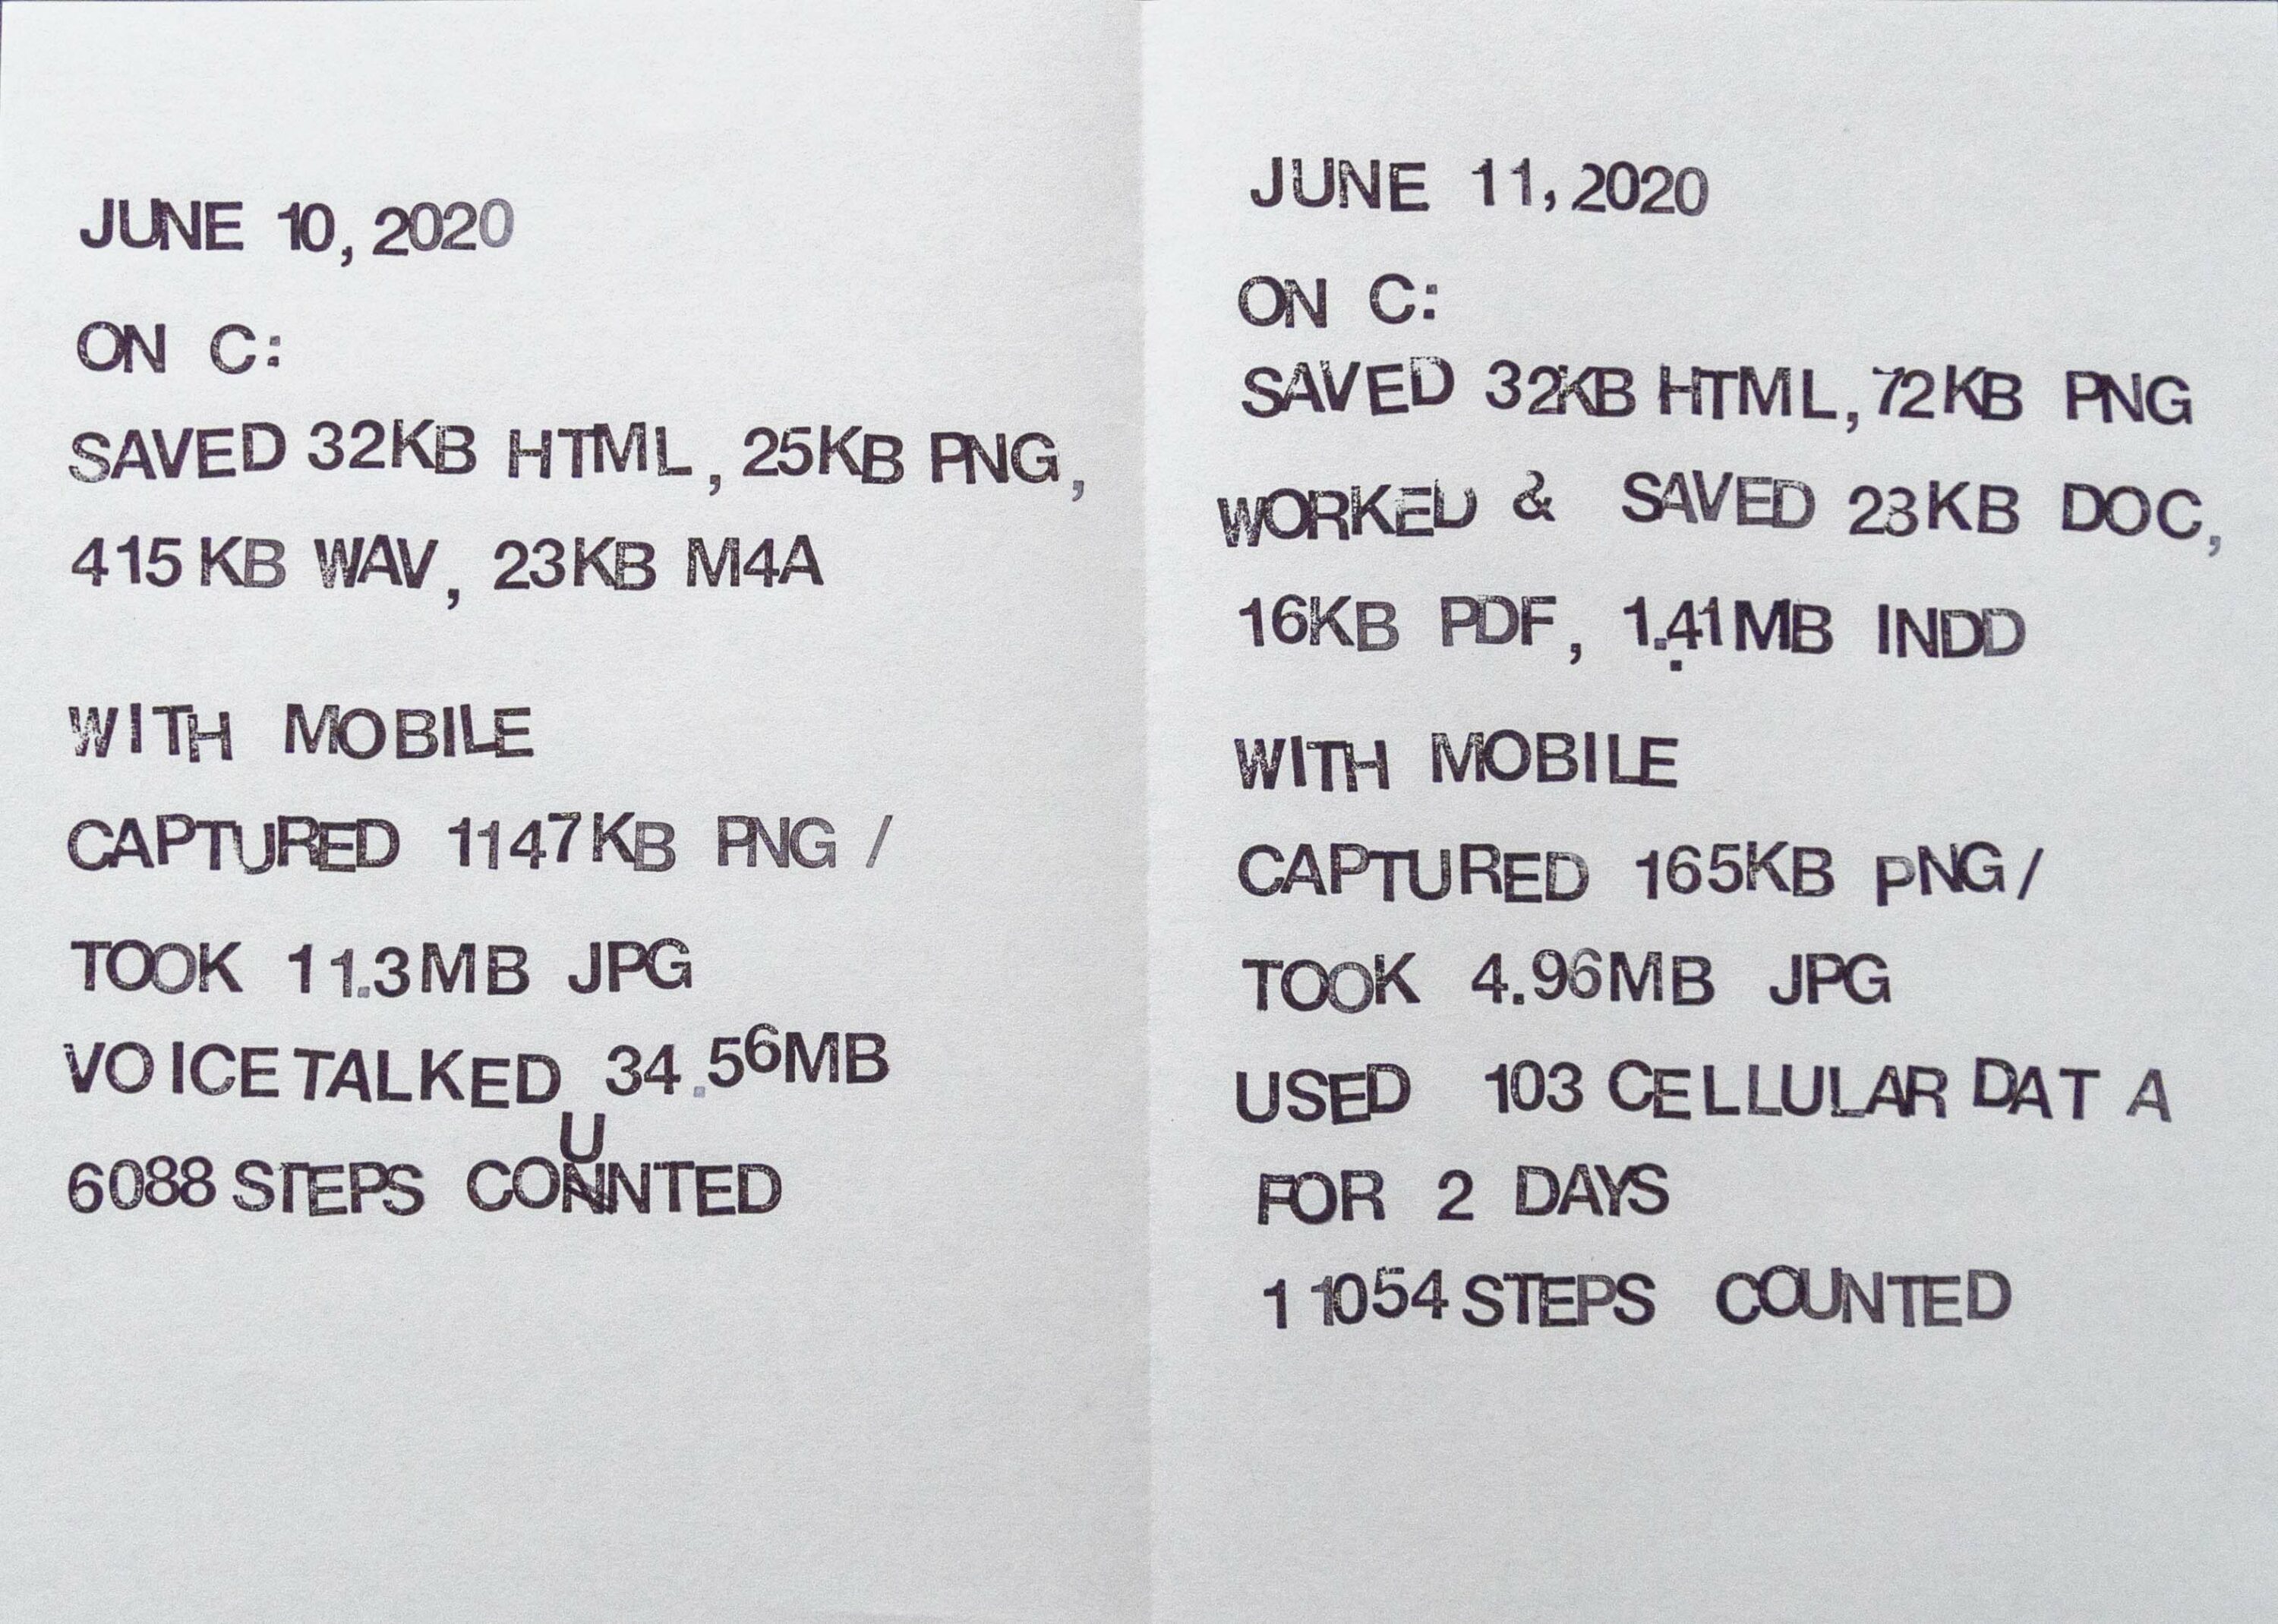 JUNE 10, 2020
ON C:
SAVED 32KB HTML, 25KB PNG,
415KB WAV, 23KB M4A
WITH MOBILE
CAPTURED 1147KB PNG /
TOOK 11.3MB JPG
VOICETALKED 34.56MB
6088 STEPS COUNTED
JUNE 11, 2020
ON C:
SAVED 32KB HTML, 72KB PNG
WORKED & SAVED 23KB DOC,
16KB PDF, 1.41MB INDD
WITH MOBILE
CAPTURED 165KB PNG/
TOOK 4.96MB JPG
USED 103 CELLULAR DATA
FOR 2 DAYS
11054 STEPS COUNTED